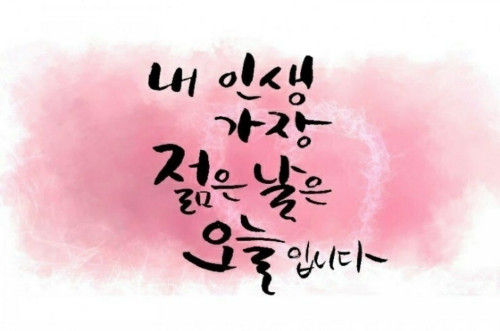 내 인생
가장
젊은 날은
오늘입니다